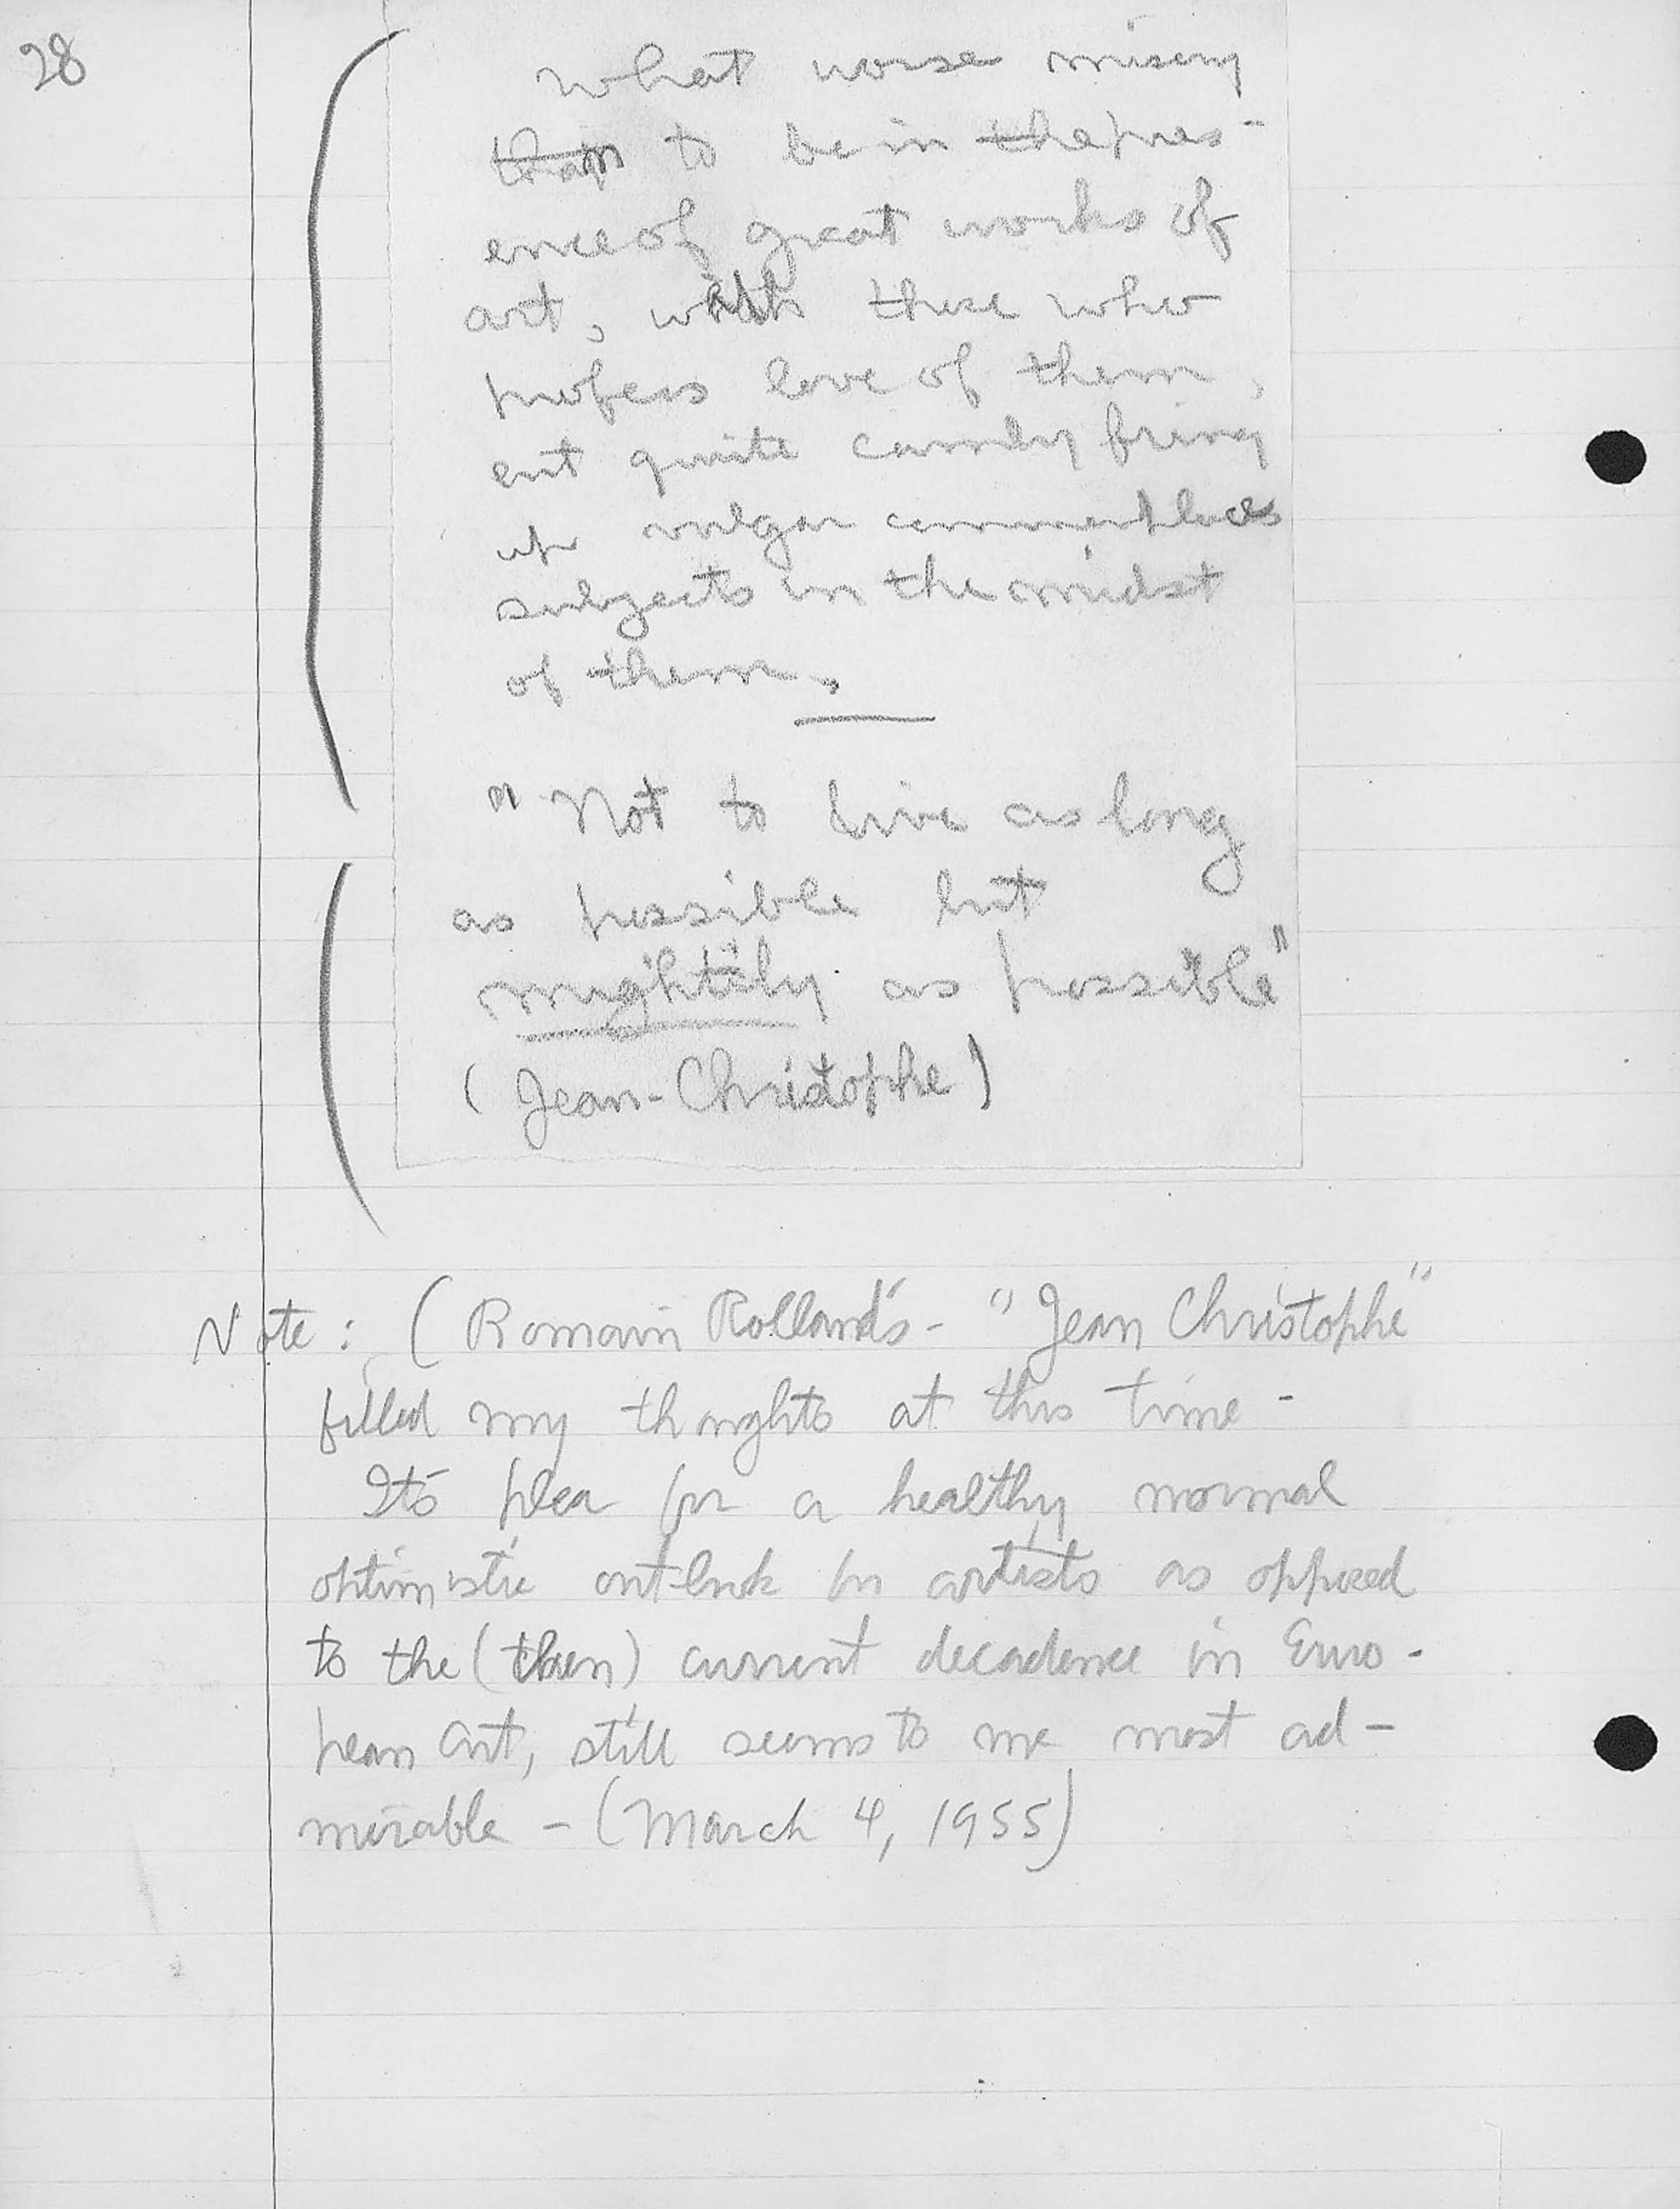 28
What worse misery
than to be in the pres-
ence of great works of
art, with those who
profess love of them,
ent quite calmly bring
up vulgar commonplaces
subjects in the midst
of them.
"Not to live as long
as possible but
mightily as possible"
(Jean-Christophe)
Note: (Romain Rolland's - "Jean Christophe"
filled my thoughts at this time -
Its plea for a healthy normal
optimistic outlook in artists as opposed
to the (then) current decadence in Euro-
pean Art, still seems to me most ad-
mirable - (March 4, 1955)